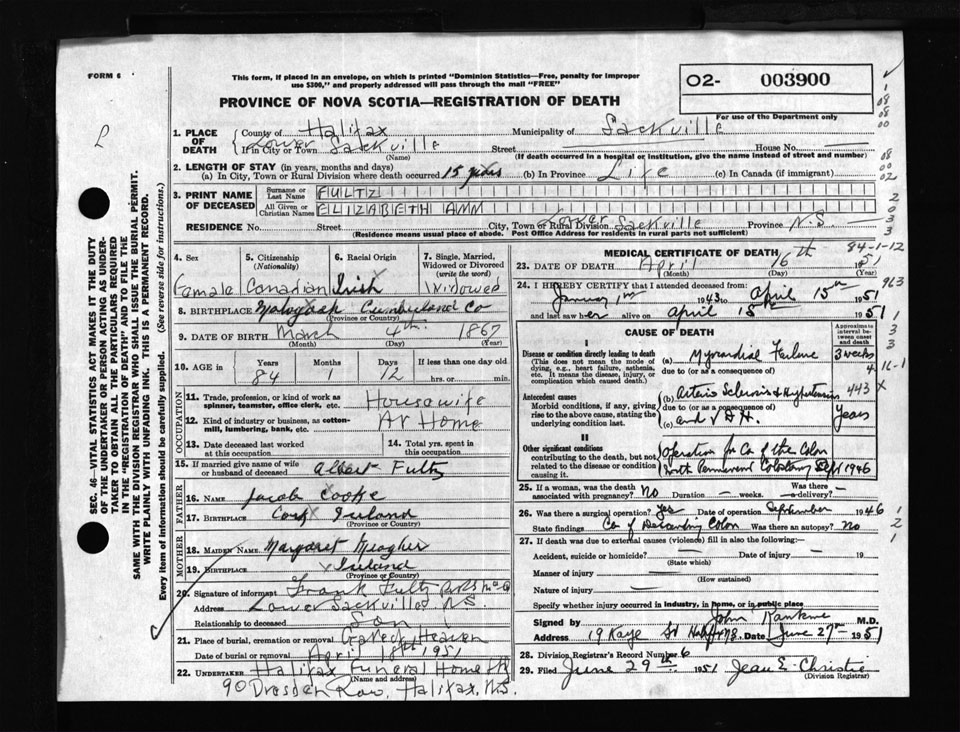 FORM 6
This form, if placed in an envelope, on which is printed "Dominion Statistics—Free, penalty for improper
use $300," and properly addressed will pass through the mail "FREE"
O2- 003900
For use of the Department only
PROVINCE OF NOVA SCOTIA—REGISTRATION OF DEATH
1. PLACE OF DEATH County of Halifax Municipality of Sackville
If in City or Town Lower Sackville Street House No.
(Name) (If death occurred in a hospital or institution, give the name instead of street and number)
2. LENGTH OF STAY (in years, months and days)
(a) In City, Town or Rural Division where death occurred 15 years (b) In Province Life (c) In Canada (if immigrant)
3. PRINT NAME OF DECEASED Surname or Last Name FULTZ
All Given or Christian Names ELIZABETH ANN
RESIDENCE No. Street City, Town or Rural Division Lower Sackville Province N.S.
(Residence means usual place of abode. Post Office Address for residents in rural parts not sufficient)
4. Sex Female
5. Citizenship (Nationality) Canadian
6. Racial Origin Irish
7. Single, Married, Widowed or Divorced (write the word) Widowed
8. BIRTHPLACE Malagash Cumberland Co
(Province or Country)
9. DATE OF BIRTH March 4th 1867
(Month) (Day) (Year)
10. AGE in Years 84 Months 1 Days 12 If less than one day old hrs. or min.
OCCUPATION
11. Trade, profession, or kind of work as spinner, teamster, office clerk, etc. Housewife
12. Kind of industry or business, as cotton-mill, lumbering, bank, etc. At Home
13. Date deceased last worked at this occupation
14. Total yrs. spent in this occupation
15. If married give name of wife or husband of deceased Albert Fultz
FATHER
16. Name Jacob Cooke
17. Birthplace Cork Ireland
(Province or Country)
MOTHER
18. Maiden Name Margaret Meagher
19. Birthplace Ireland
(Province or Country)
20. Signature of informant Frank Fultz
Address Lower Sackville N.S.
Relationship to deceased Son
21. Place of burial, cremation or removal Gate of Heaven
Date of burial or removal April 18th 1951
22. UNDERTAKER Halifax Funeral Home
(Name and address)
90 Dresden Row, Halifax, N.S.
MEDICAL CERTIFICATE OF DEATH
84-1-12
23. DATE OF DEATH April 16th 1951
(Month) (Day) (Year)
24. I HEREBY CERTIFY that I attended deceased from:
January 1st 1943 to April 15th 1951
and last saw her alive on April 15th 1951
CAUSE OF DEATH
Approximate interval between onset and death
I
Disease or condition directly leading to death (a) Myocardial Failure 3 weeks
(This does not mean the mode of dying, e.g., heart failure, asthenia, etc. It means the disease, injury, or complication which caused death.)
due to (or as a consequence of)
Antecedent causes (b) Arterio Sclerosis & Hypertension 443
Morbid conditions, if any, giving rise to the above cause, stating the underlying condition last.
due to (or as a consequence of) years
(c)
II
Other significant conditions contributing to the death, but not related to the disease or condition causing it.
Operation for Ca of the Colon
with Permanent Colostomy Sept 1946
25. If a woman, was the death associated with pregnancy? No Duration — weeks. Was there —delivery?
26. Was there a surgical operation? Yes Date of operation September 1946
State findings Ca of Descending Colon Was there an autopsy? No
27. If death was due to external causes (violence) fill in also the following:—
Accident, suicide or homicide? Date of injury 19
(State which)
Manner of injury
(How sustained)
Nature of injury
Specify whether injury occurred in industry, in home, or in public place
Signed by John Rankine M.D.
Address 19 Kaye St Date June 27th 1951
28. Division Registrar's Record Number 6
29. Filed June 29th 1951 Jean E. Christie
(Division Registrar)
SEC. 46—VITAL STATISTICS ACT MAKES IT THE DUTY
OF THE UNDERTAKER OR PERSON ACTING AS UNDER-
TAKER TO OBTAIN ALL THE PARTICULARS REQUIRED
IN THE "REGISTRATION OF DEATH" AND TO FILE THE
SAME WITH THE DIVISION REGISTRAR WHO SHALL ISSUE THE BURIAL PERMIT.
WRITE PLAINLY WITH UNFADING INK. THIS IS A PERMANENT RECORD.
Every item of information should be carefully supplied. (See reverse side for instructions.)